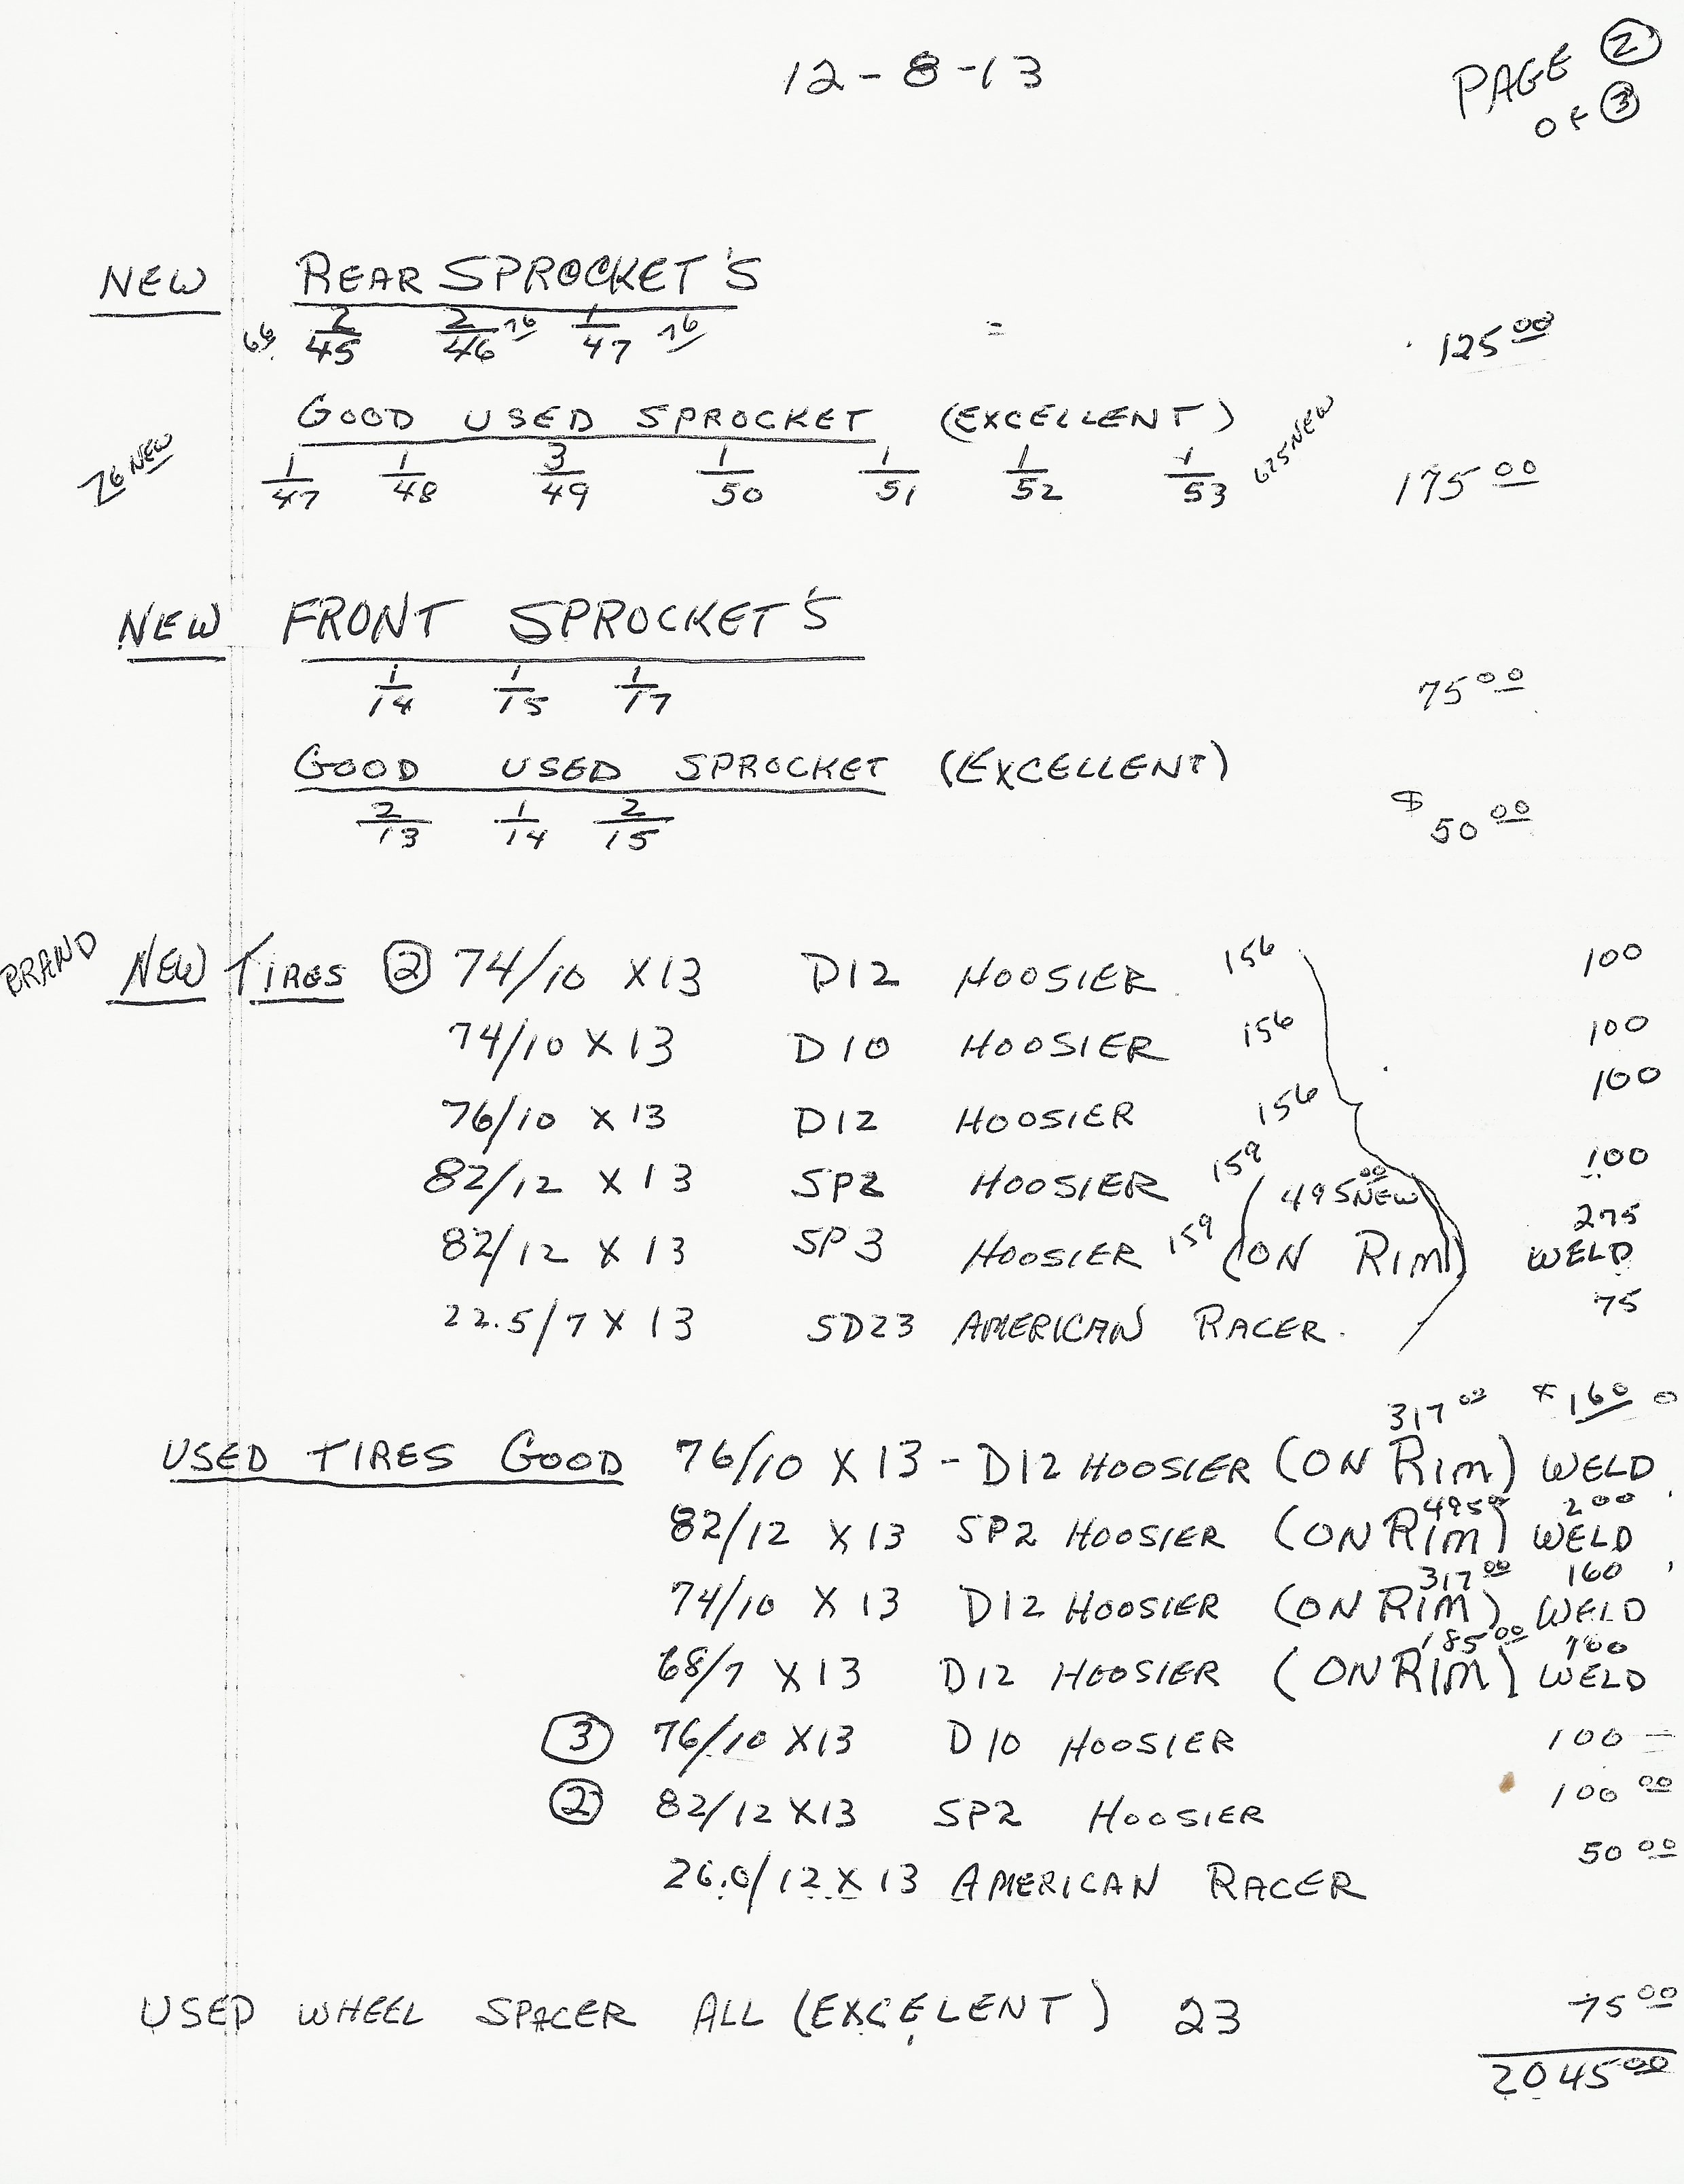 12-8-13
PAGE 2
of 3
NEW REAR SPROCKET'S
66 2/45 2/46 76 1/47 76 = 125 00
GOOD USED SPROCKET (EXCELLENT)
76 NEW 1/47 1/48 3/49 1/50 1/51 1/52 1/53 625 NEW 175 00
NEW FRONT SPROCKET'S
1/14 1/15 1/17 75 00
GOOD USED SPROCKET (EXCELLENT)
2/13 1/14 2/15 $50 00
BRAND NEW TIRES 2 74/10 X13 D12 HOOSIER 156 100
74/10 X 13 D10 HOOSIER 156 100
76/10 X 13 D12 HOOSIER 156 100
82/12 X 13 SP2 HOOSIER 159 100
495 00 NEW 275
82/12 X 13 SP3 HOOSIER 159 (ON RIM) WELD
22.5/7 X 13 SD23 AMERICAN RACER. 75
317 00 160
USED TIRES GOOD 76/10 X 13 - D12 HOOSIER (ON RIM) WELD
495 200
82/12 X 13 SP2 HOOSIER (ON RIM) WELD
317 00 160
74/10 X 13 D12 HOOSIER (ON RIM) WELD
185 00 100
68/7 X 13 D12 HOOSIER (ON RIM) WELD
3 76/10 X13 D10 HOOSIER 100
2 82/12 X13 SP2 HOOSIER 100 00
26.0/12 X 13 AMERICAN RACER 50 00
USED WHEEL SPACER ALL (EXCELENT) 23 75 00
2045 00